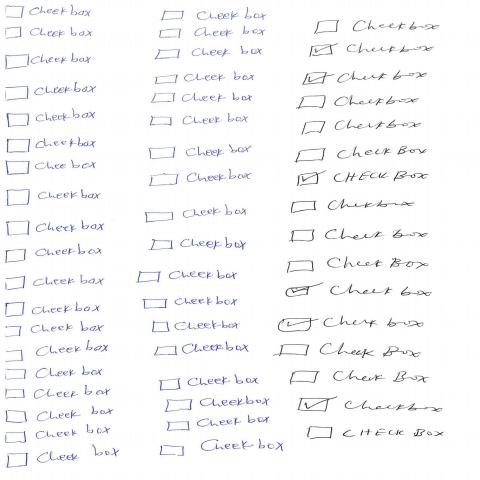 Check box
Check box
Check box
Check box
Check box
Check box
Chee box
Check box
Check box
Check box
Check box
Check box
Check box
Check box
Check box
Check box
Check box
Check box
Check box
Check box
Check box
Check box
Check box
Check box
Check box
Check box
Check box
Check box
Check box
Check box
Check box
Check box
Check box
Check box
Checkbox
Check box
Check box
Checkbox
Checkbox
Checkbox
Checkbox
Checkbox
Check Box
CHECK BOX
Checkbox
Check box
Check Box
Check box
Check box
Check Box
Check Box
Checkbox
CHECK BOX